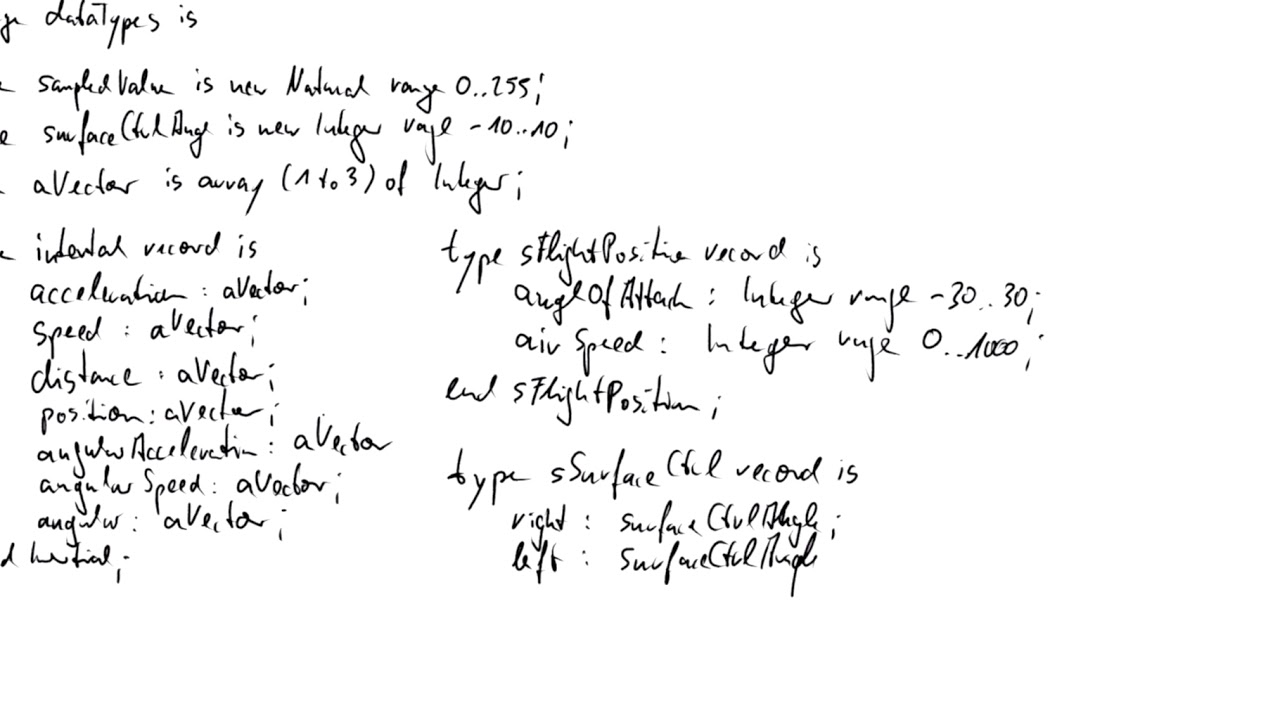 ge dataTypes is
e sampledValue is new Natural range 0..255;
e surfaceCtrlAngl is new Integer range -10..10;
aVector is array (1 to 3) of Integer;
e inertial record is
acceleration : aVector;
speed : aVector;
distance : aVector;
position : aVector;
angularAcceleration : aVector
angularSpeed : aVector;
angular : aVector;
d Inertial;
type sFlightPosition record is
anglOfAttack : Integer range -30..30;
airSpeed : Integer range 0..1000;
end sFlightPosition;
type sSurfaceCtrl record is
right : surfaceCtrlAngle;
left : surfaceCtrlAngle